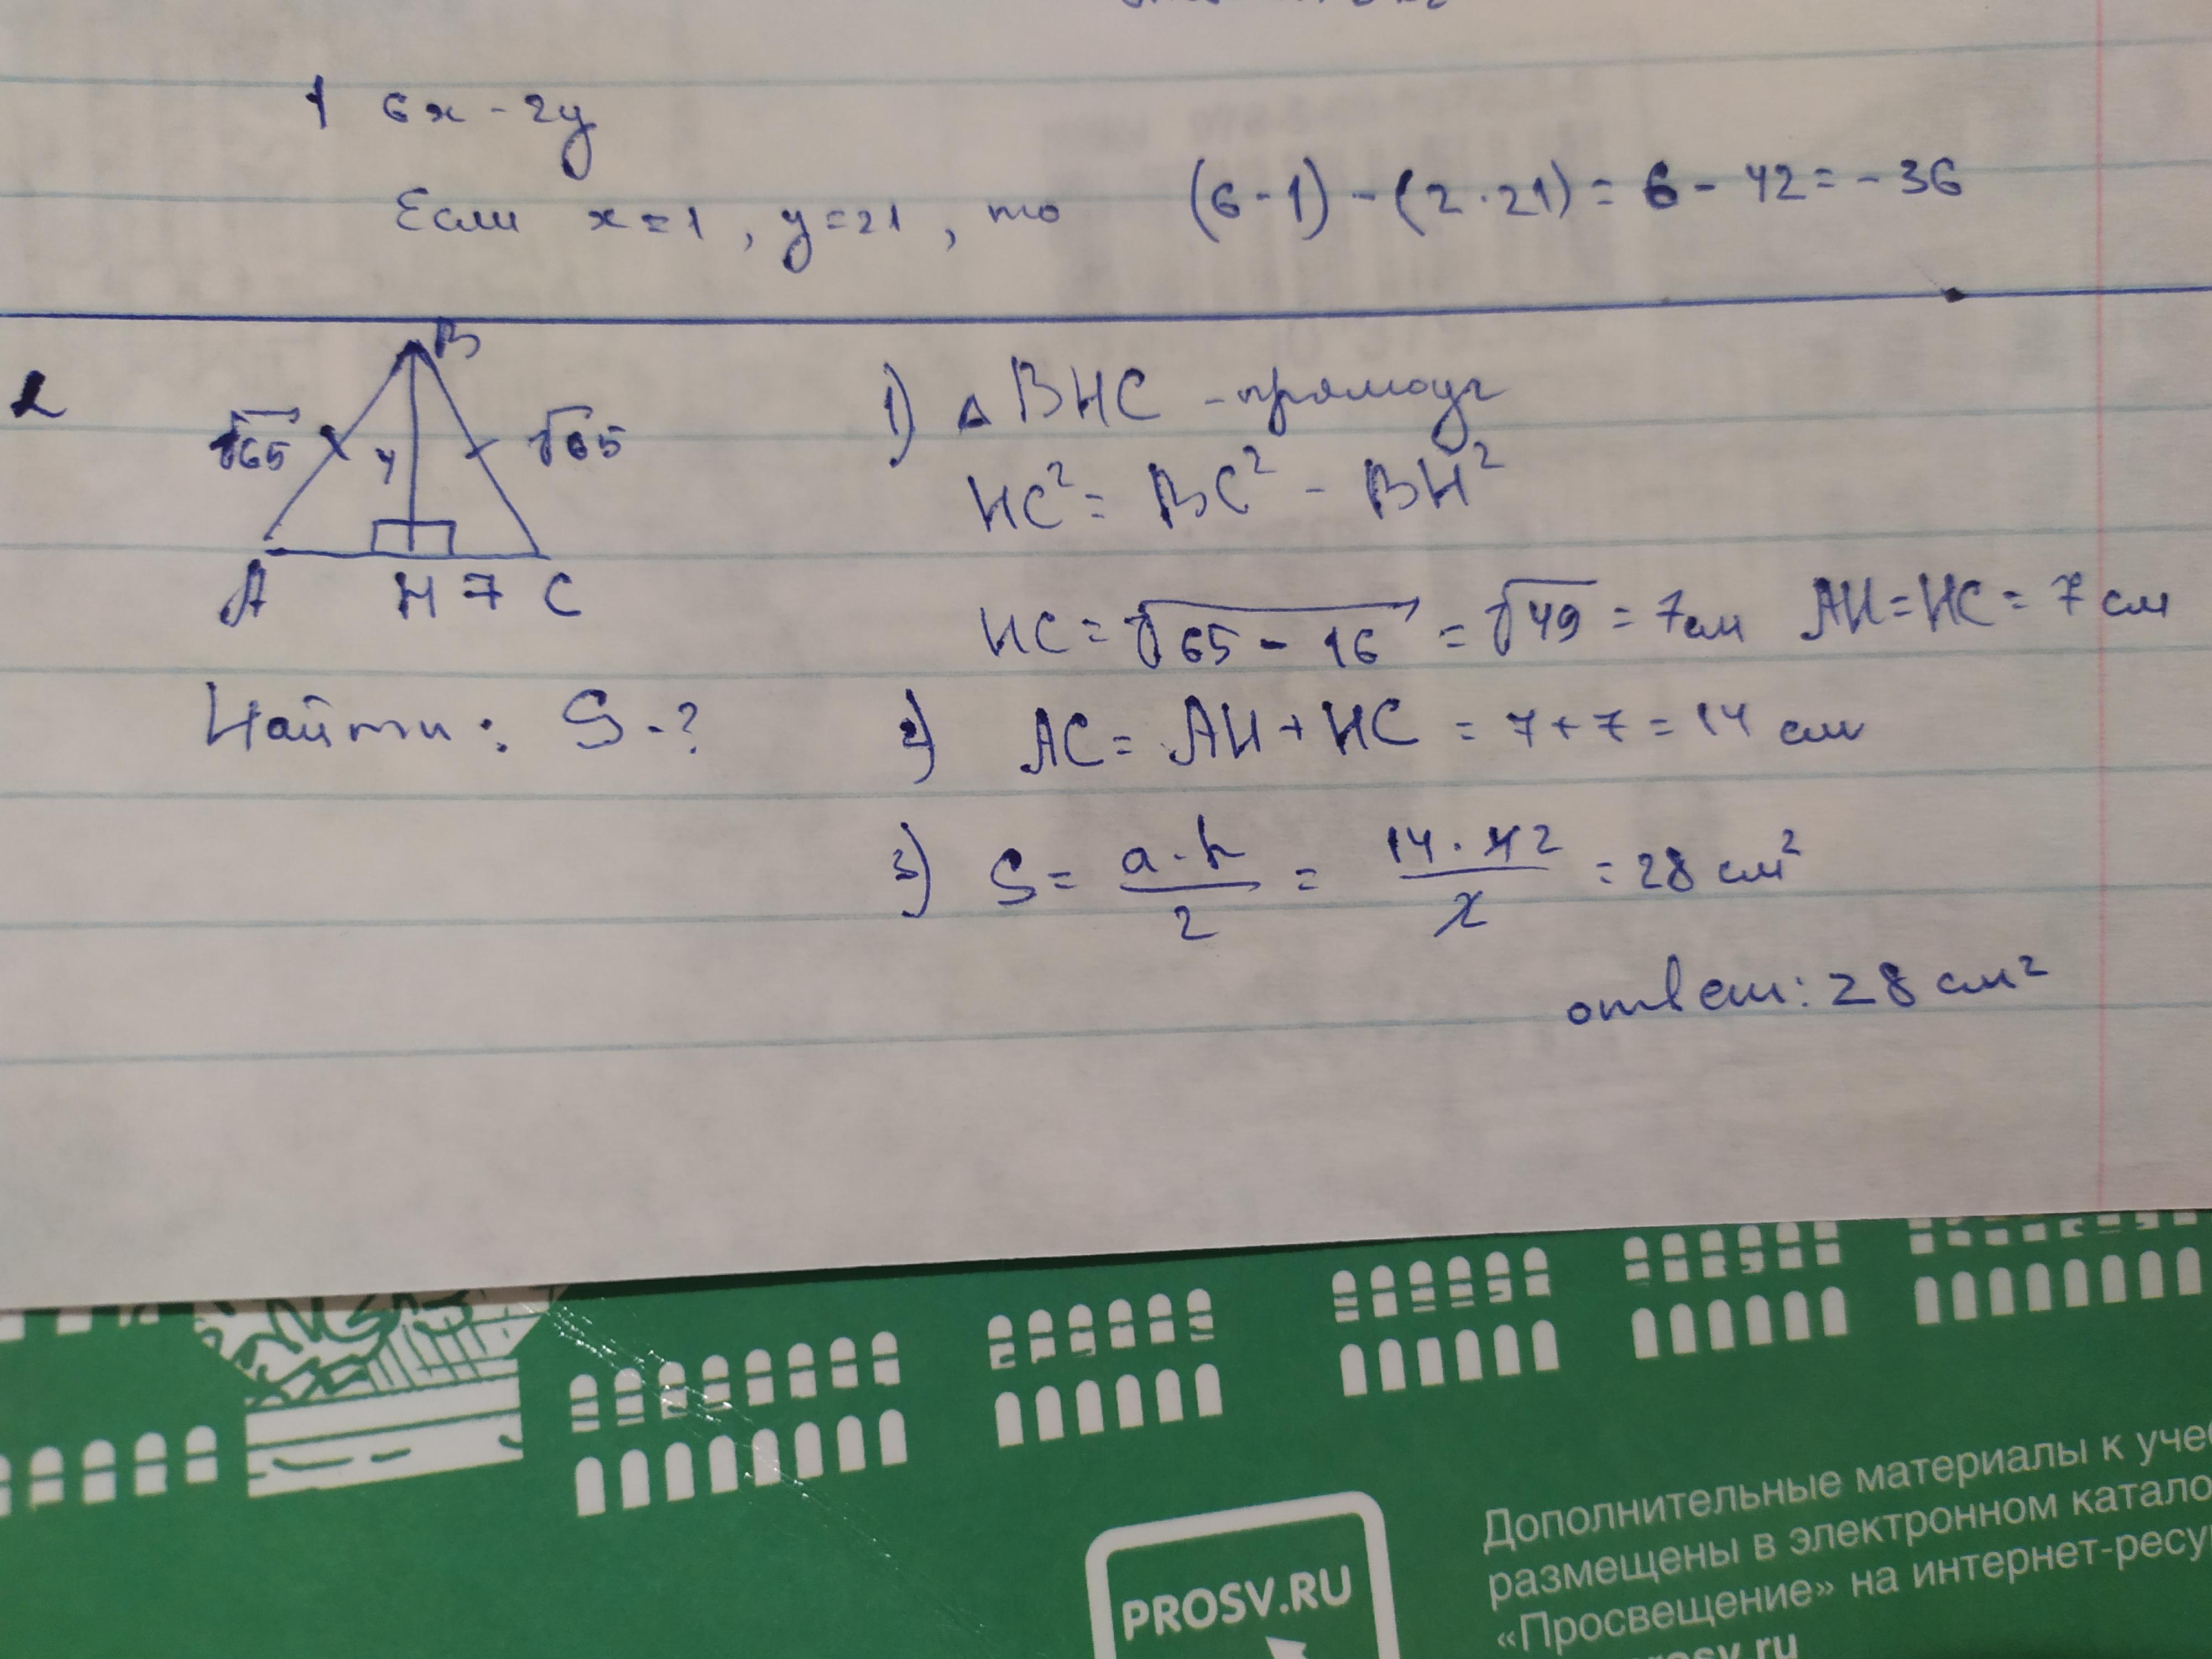 1 6x - 2y
Если x = 1, y = 21, то (6 · 1) - (2 · 21) = 6 - 42 = -36
2
B
√65 4 √65
A H 7 C
Найти: S - ?
1) △ BHC - прямоуг
HC² = BC² - BH²
HC = √65 - 16 = √49 = 7см AH = HC = 7 см
2) AC = AH + HC = 7 + 7 = 14 см
3) S = a · h / 2 = 14 · 4 2 / 2 = 28 см²
ответ: 28 см²
PROSV.RU
Дополнительные материалы к уче
размещены в электронном катало
«Просвещение» на интернет-ресу
rosv.ru